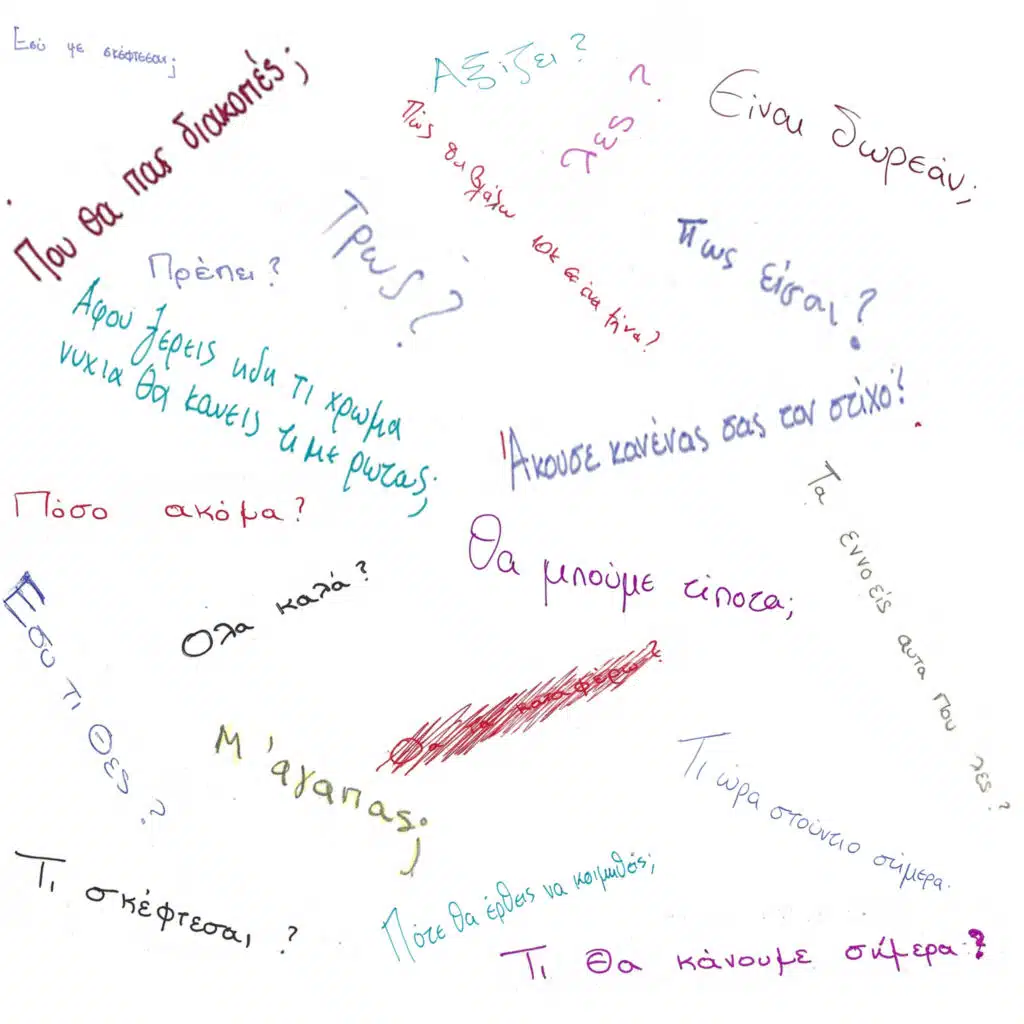 Εσύ με σκέφτεσαι;
Που θα πας διακοπές;
Αξίζει?
Λες?
Είναι δωρεάν;
Πώς θα βγάλω 10k σε ένα μήνα?
Τρως?
Πως είσαι?
Πρέπει?
Αφού ξερεις ηδη τι χρωμα
νυχια θα κανεις τι με ρωτας;
Άκουσε κανένας σας τον στίχο?
Πόσο ακόμα?
Τα εννοείς αυτα που λες?
Θα μπούμε τίποτα;
Όλα καλά?
Εσυ τι θες?
Θα τα καταφέρω?
Μ'άγαπας;
Τι ώρα στούντιο σήμερα.
Τι σκέφτεσαι?
Πότε θα έρθεις να κοιμηθείς;
Τι θα κάνουμε σήμερα?